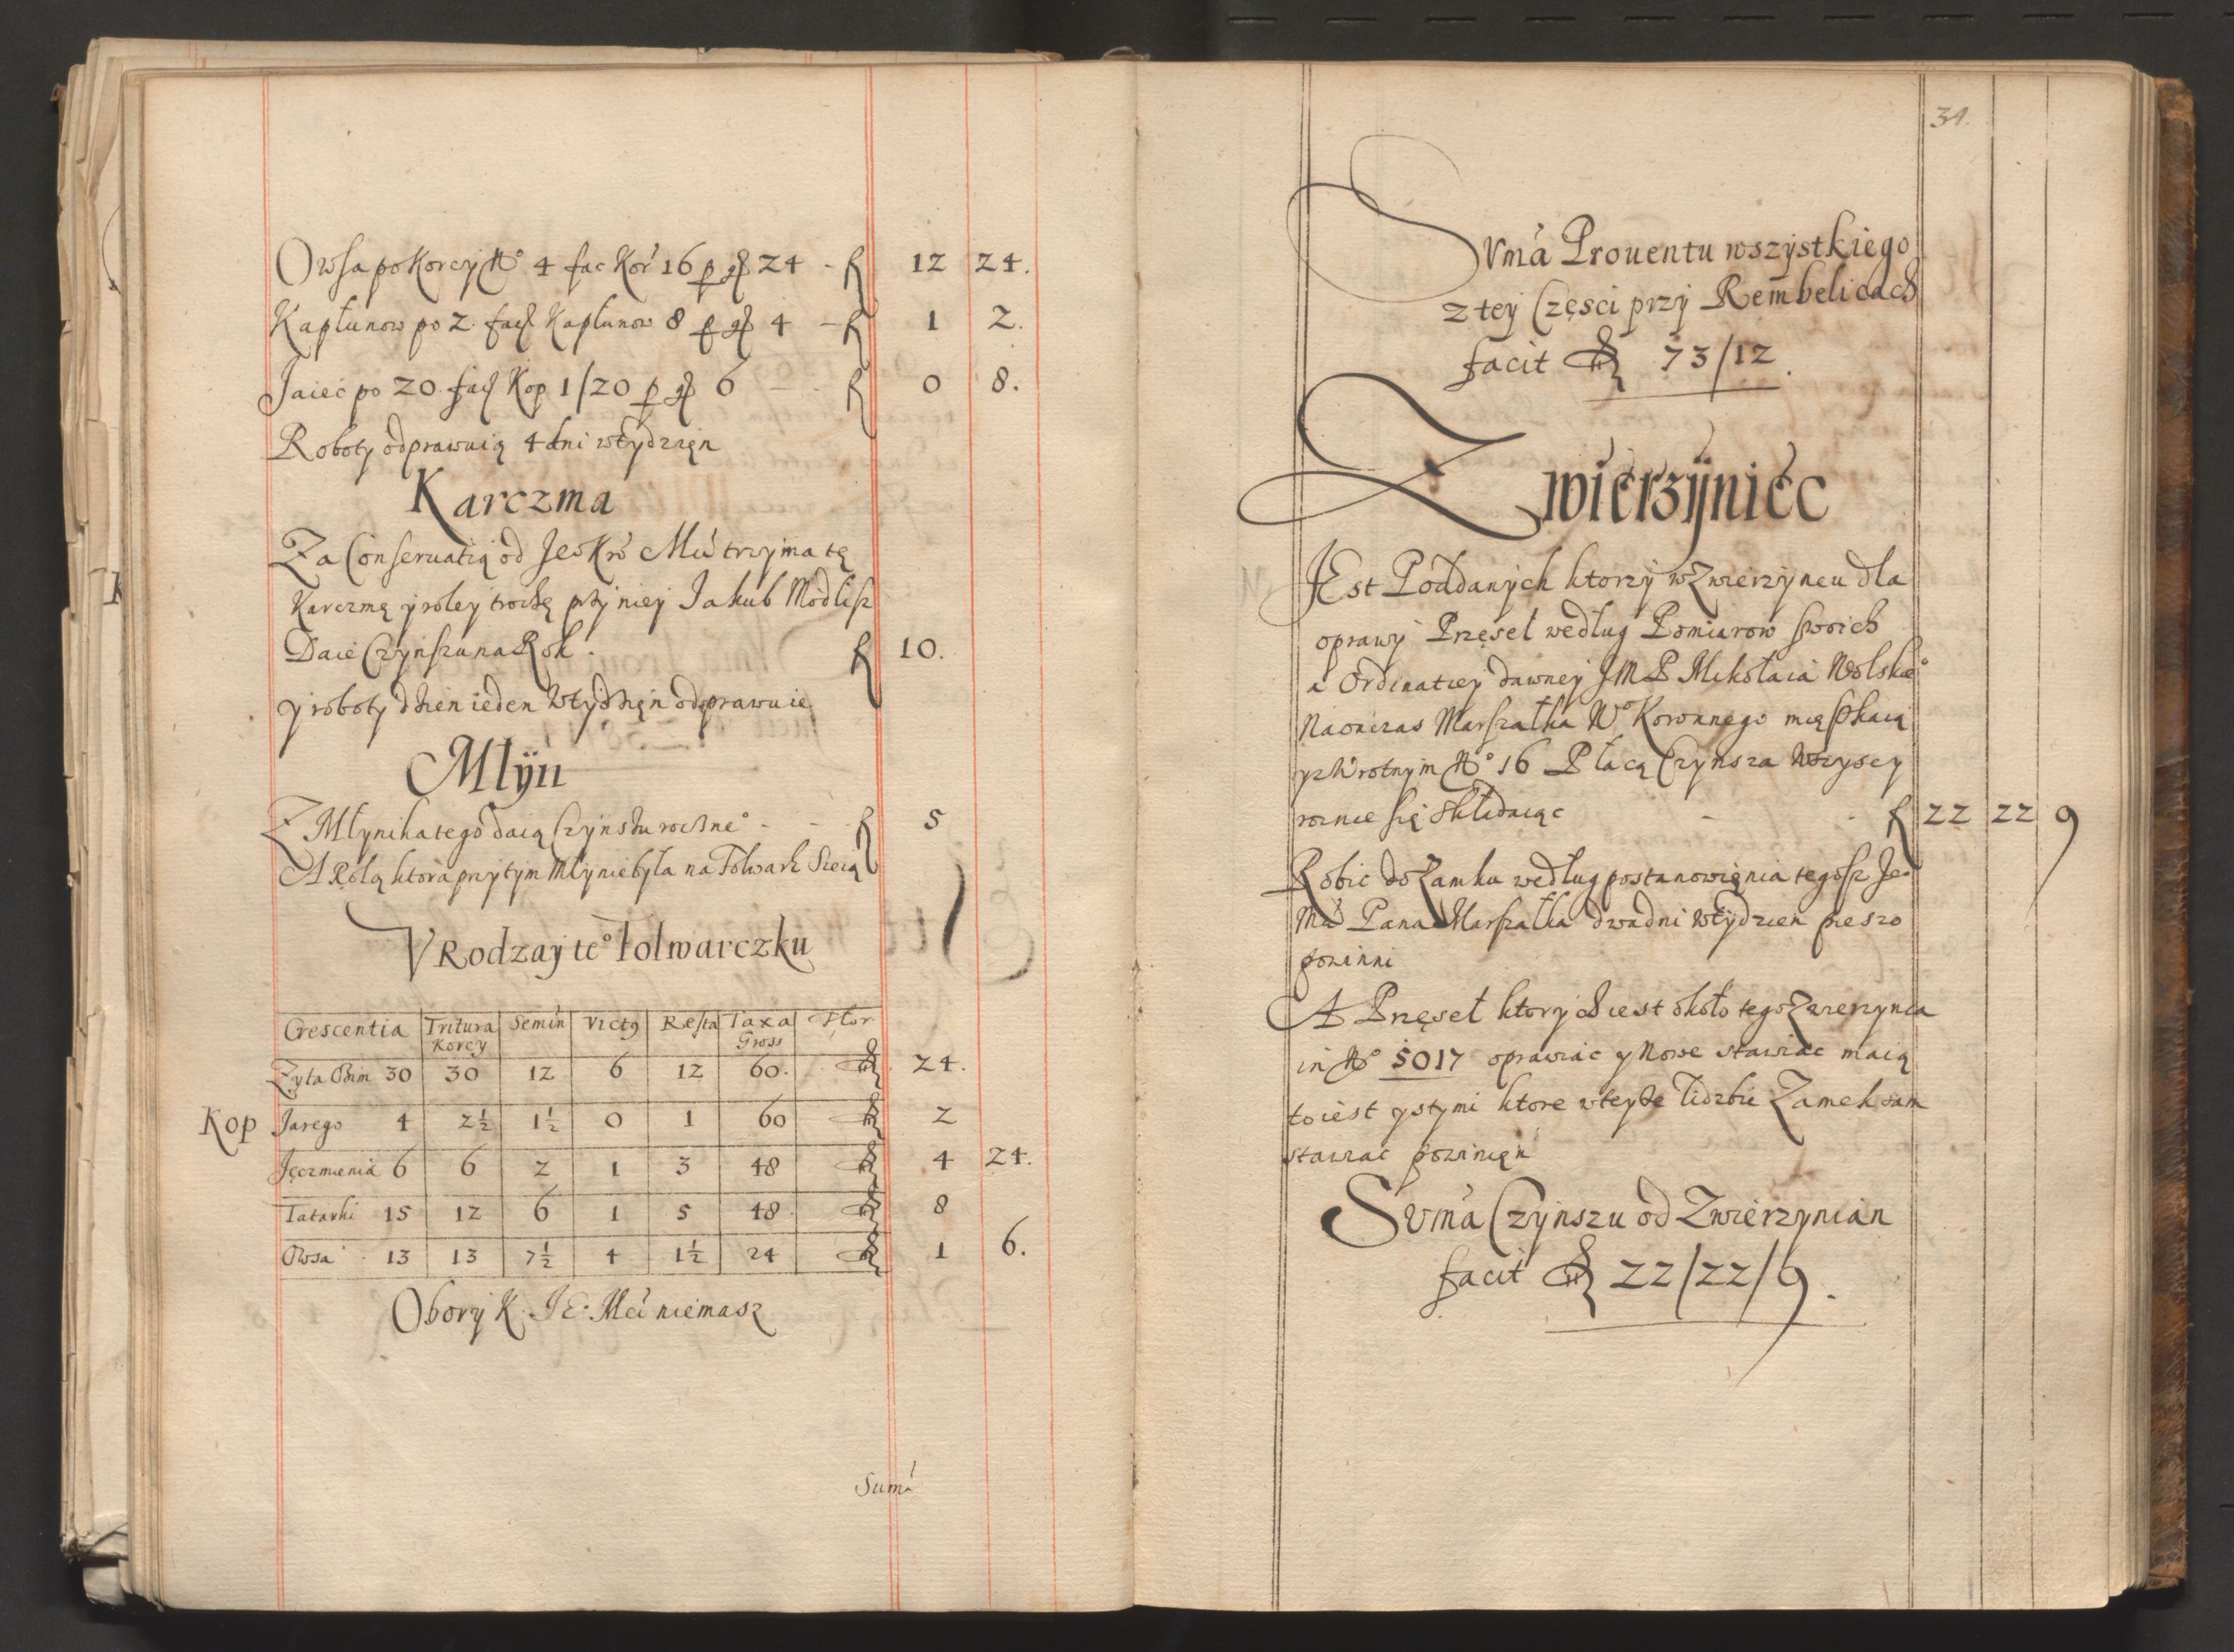 Owsa po Korcy No 4 fac Kor 16 p gr 24 - f 12 24.
Kapłunow po 2. facit Kapłunow 8 p gr 4 - f 1 2.
Jaiec po 20 facit Kop 1/20 p gr 6 - f 0 8.
Roboty odprawuią 4 dni wtydzięn
Karczma
Za Conseruatią od Jeo Kro Mci trzyma tę
Karczmę y roley trochę przy niey Jakub Modlisz
Daie Czynszu na Rok. f 10.
y roboty dzien ieden wtydzięn odprawuie
Młÿn
Z Młynika tego daią Czynszu roczneo - - f 5
A Rolą ktora przy tym Młynie była na Folwark Sieią
V Rodzaÿ teo folwarczku
Crescentia Tritura Korcy Semin Victq Resta Taxa Gross Flor
Kop
Zyta Ozim 30 30 12 6 12 60. f 24.
Jarego 4 2½ 1½ 0 1 60 f 2
Jęczmienia 6 6 2 1 3 48 f 4 24.
Tatarki 15 12 6 1 5 48 f 8
Owsa 13 13 7½ 4 1½ 24 f 1 6.
Obory K. JE. Mci niemasz
Suma
34.
Suma Prouentu wszystkiego
z tey Częsci przy Rembelicach
facit f 73/12.
Zwierzÿniec
JEst Poddanych ktorzy w Zwierzyncu dla
oprawy Przęseł według Pomiarow swoich
a Ordinatiey dawney JMP Mikołaia Wolskieo
Naonczas Marszałka Wo Koronnego mięszkaią
y z Wrotnym No 16 Płacą Czynsza Wszyscy
rocznie się składaiąc - - f 22 22 9
Robic do Zamku według postanowięnia tegosz Jeo
Mci Pana Marszałka dwa dni wtydzien pieszo
powinni
A Przęseł ktorych iest około tego Zwierzynca
in No 5017 oprawiac y Nowe stawiac maią
to iest y stymi ktore wteyze liczbie Zamek sam
stawiac powinięn
Suma Czynszu od Zwierzynian
facit f 22/22/9.